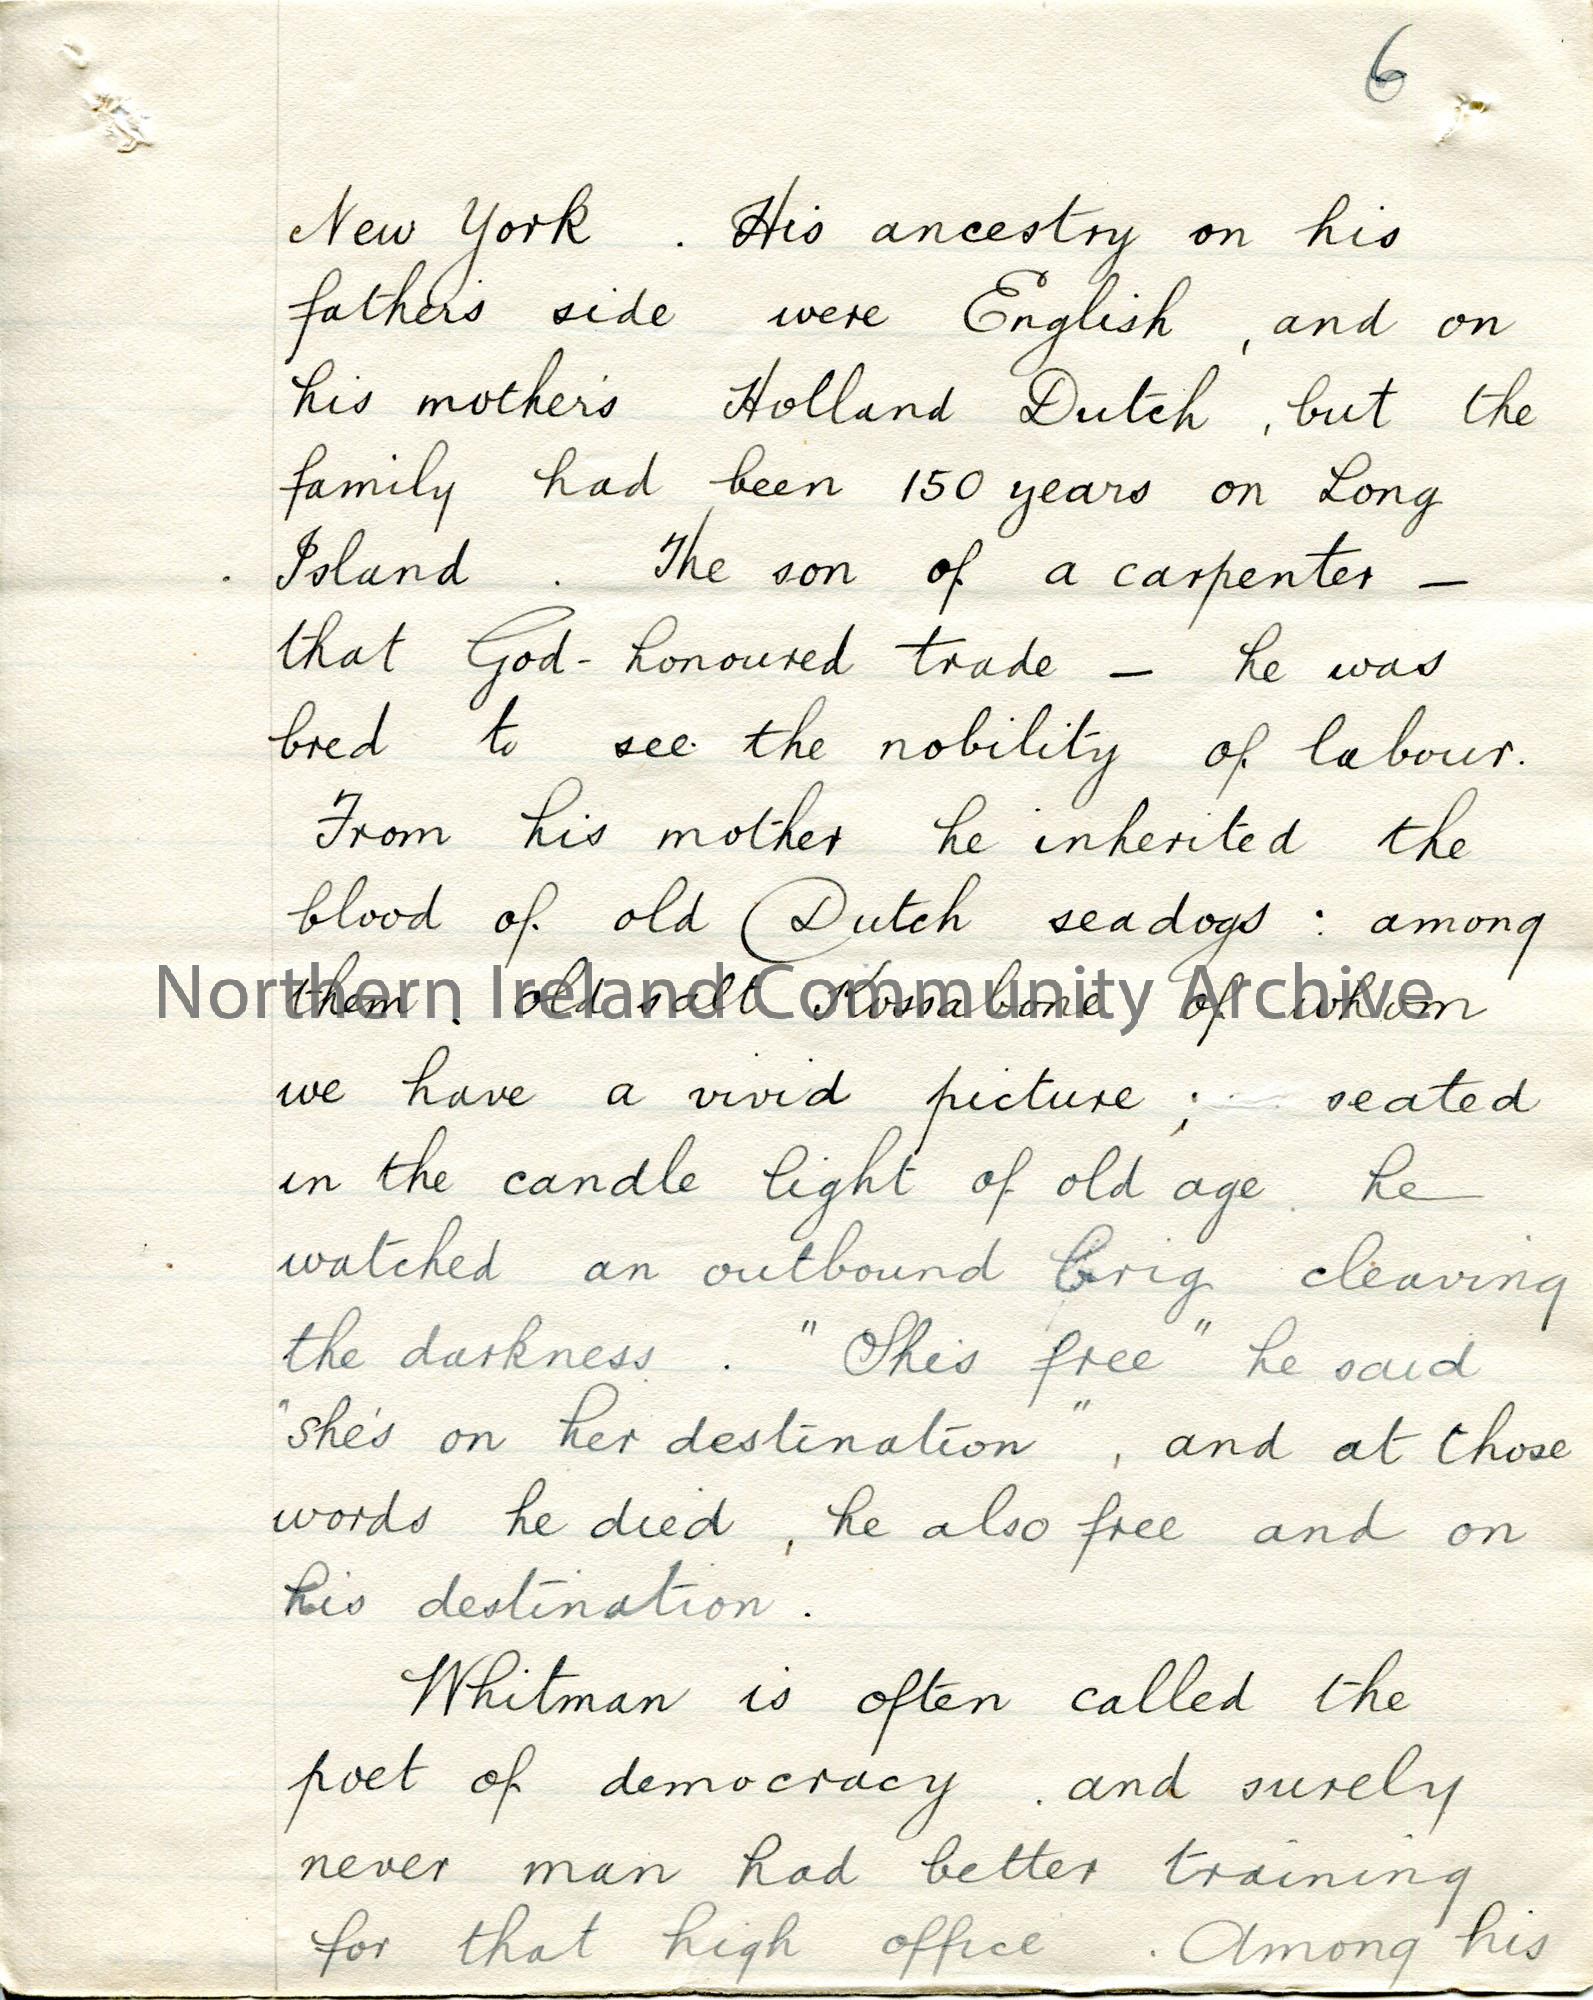 6
New York . His ancestry on his
father's side were English , and on
his mother's Holland Dutch , but the
family had been 150 years on Long
Island . The son of a carpenter —
that God-honoured trade — he was
bred to see the nobility of labour.
From his mother he inherited the
blood of old Dutch seadogs : among
them . old salt Kossabone of whom
Northern Ireland Community Archive
we have a vivid picture ; seated
in the candle light of old age . he
watched an outbound brig cleaving
the darkness . " Shes free " he said
"she's on her destination " , and at those
words he died , he also free and on
his destination .
Whitman is often called the
poet of democracy . and surely
never man had better training
for that high office . Among his